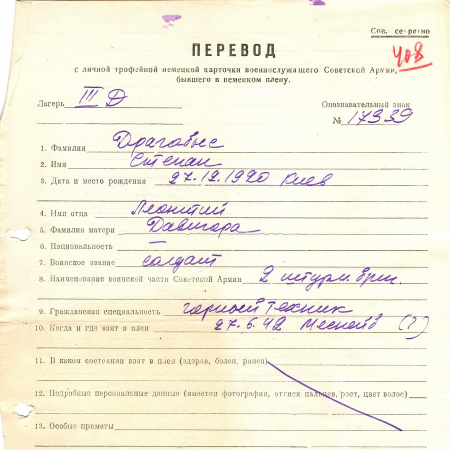 Сов. секретно
408
ПЕРЕВОД
с личной трофейной немецкой карточки военнослужащего Советской Армии,
бывшего в немецком плену.
Лагерь III Д Опознавательный знак
№ 17339
1. Фамилия Драговыс
2. Имя Степан
3. Дата и место рождения 27.12.1920 Киев
4. Имя отца Леонтий
5. Фамилия матери
6. Национальность —
7. Воинское звание солдат
8. Наименование воинской части Советской Армии 2 штурм. бриг.
9. Гражданская специальность горный техник
10. Когда и где взят в плен 27.6.42 (?)
11. В каком состоянии взят в плен (здоров, болен, ранен)
12. Подробные персональные данные (имеется фотография, оттиск пальцев, рост, цвет волос)
13. Особые приметы